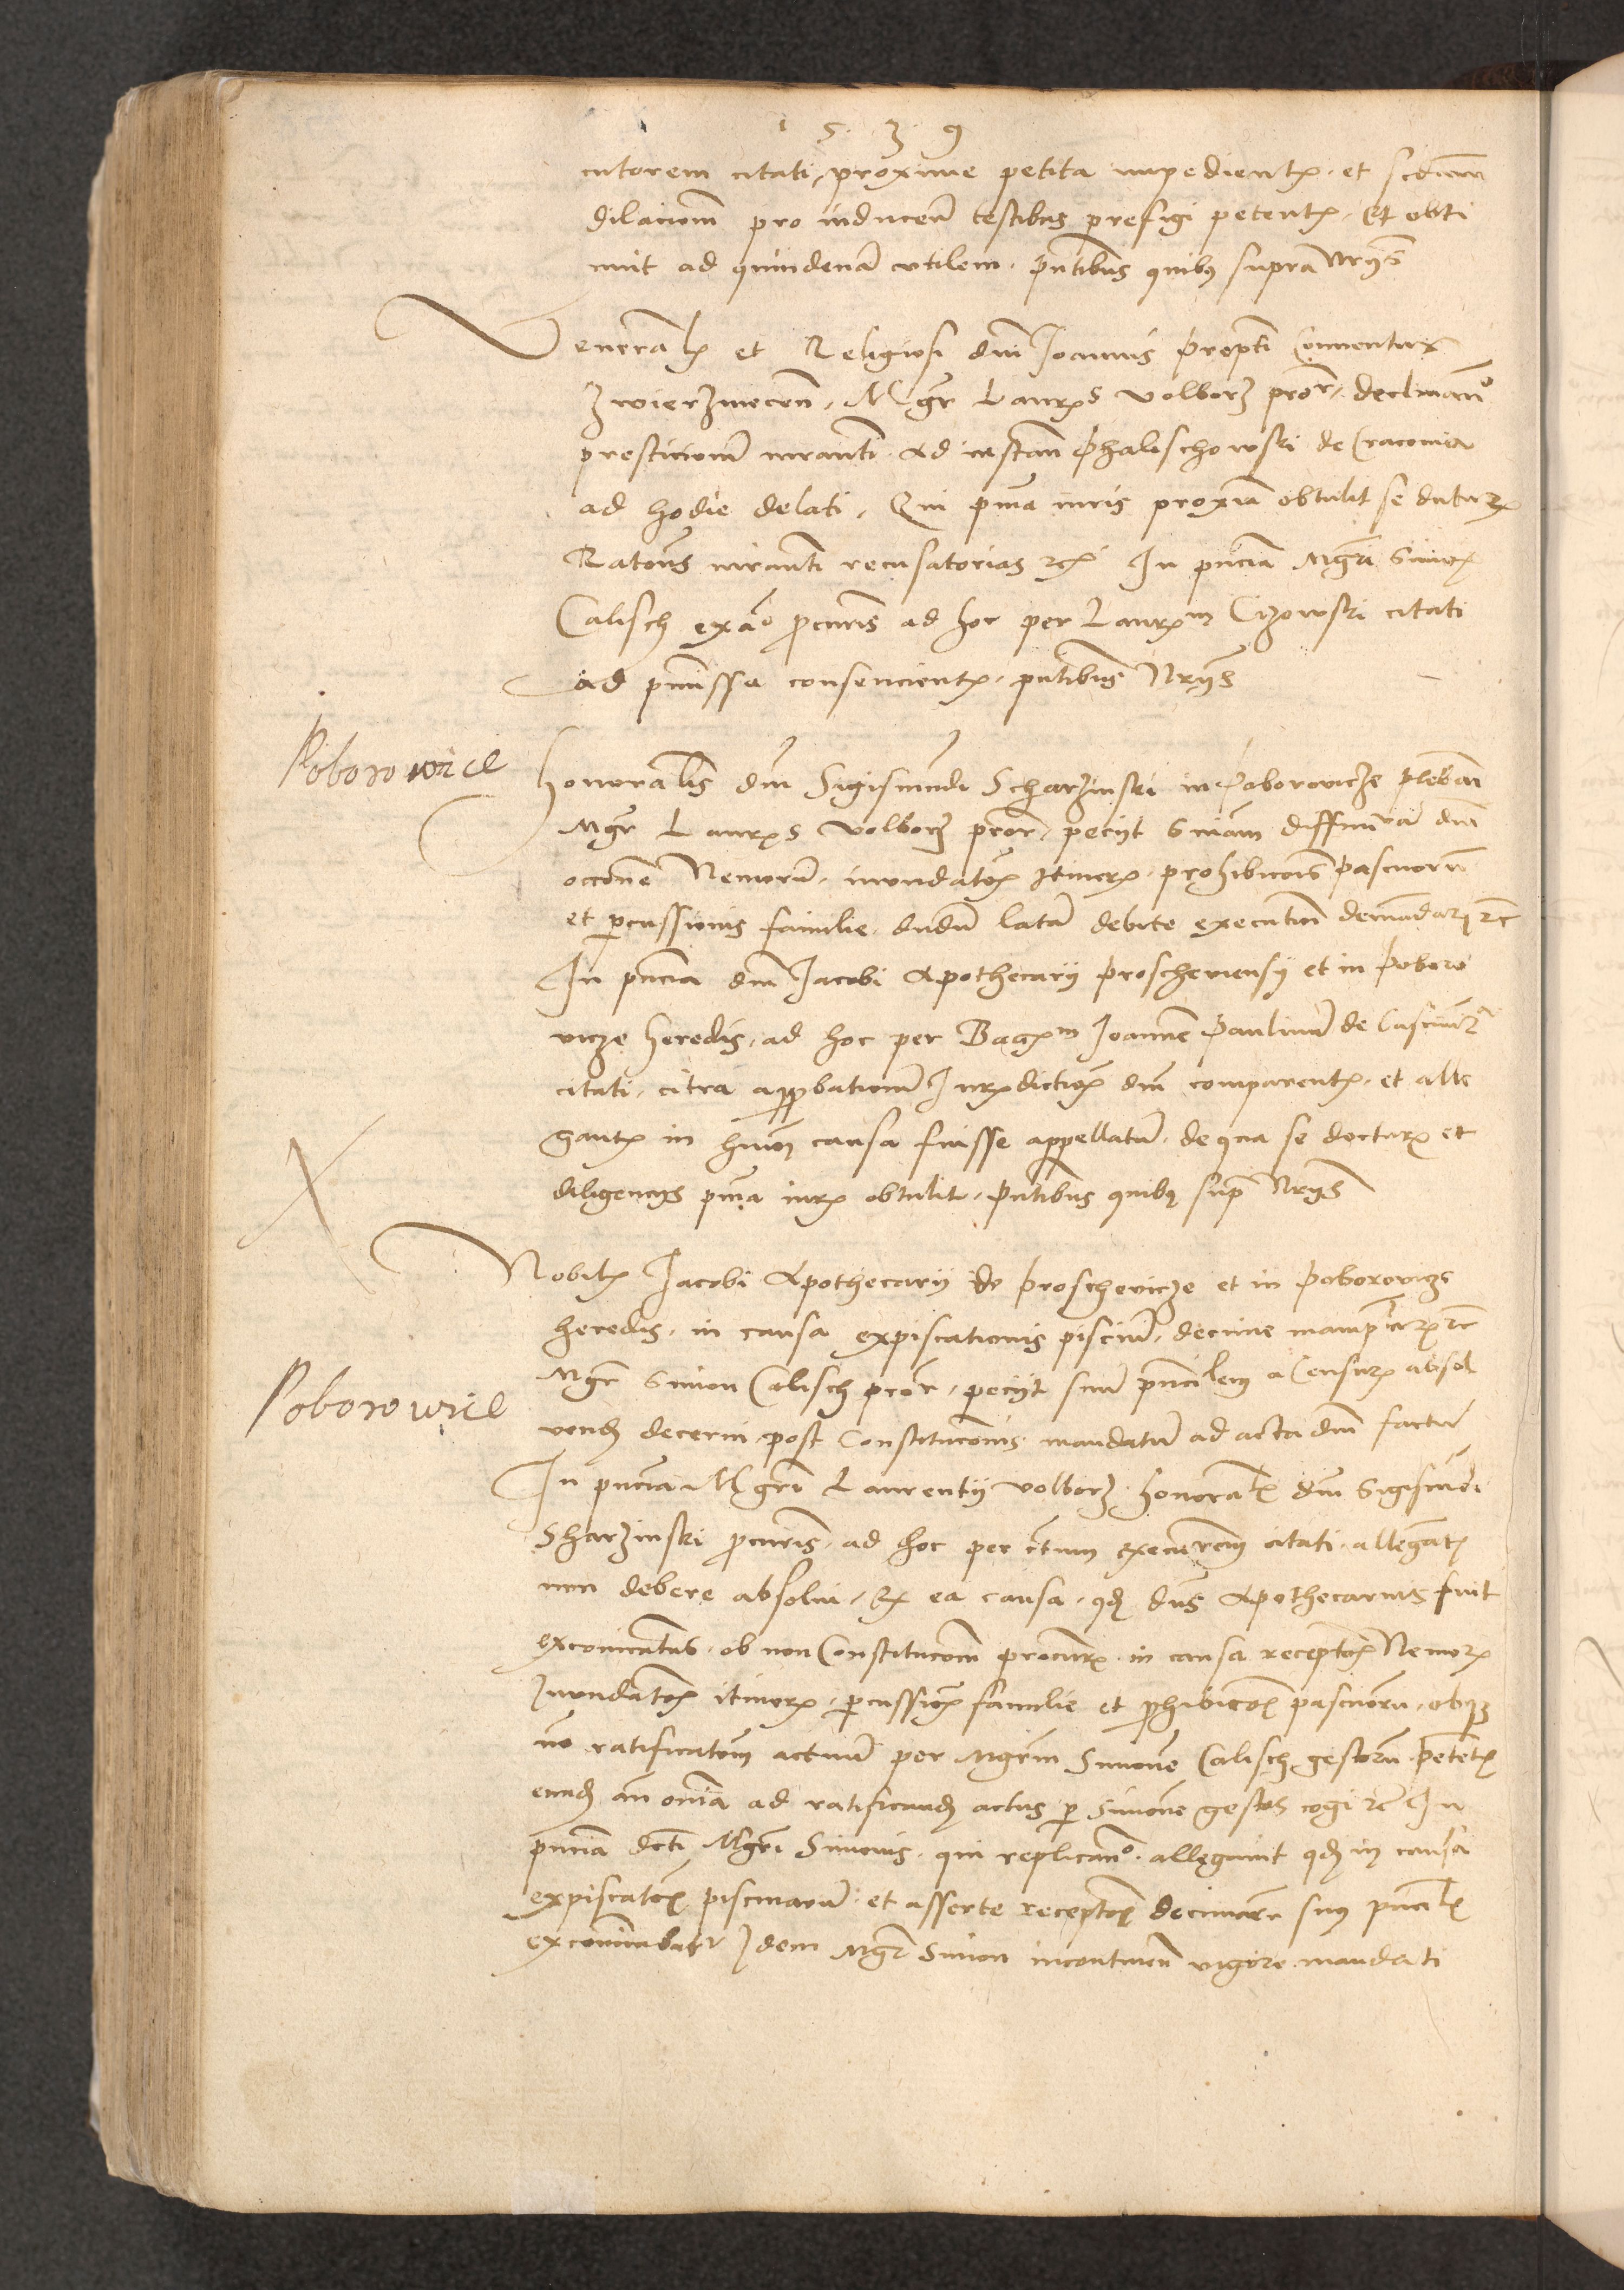 1539
cutorem citati, proxime petita impedientis et secundam
dilacionem pro inducendis testibus prefigi petentis. Et obti
nuit ad quindenam utilem. presentibus quibus supra Notariis
Venerabilis et Religiosi domini Joannis prepositi Conventus
Zwierzinecensis, Mgr Laurencius Volborz procurator, declinando
presticionem iuramenti ad instanciam Phalischowski de Cracovia
ad hodie delati, Qui prima iuris proxima obtulit se daturum
Rationes iuramenti recusatorias etc. In presencia Mgri Simonis
Calisch ex adverso procuratoris ad hoc per Laurencium Cizowski citati
ad premissa consencientis. presentibus Notariis
Poborowice
honorabilis domini Sigismundi Scharzinski in Poborovicze plebani
Mgr Laurencius Volborz procurator, peciit Sententiam diffinitivam dudum
occasione Nemorum, inundationis Itineris, prohibicionis pascuorum
et percussionis familie, dudum latam debite executioni demandari etc.
In presencia domini Jacobi Apothecarii Proscheviensis et in Poboro
vicze heredis, ad hoc per Joannem Paulinum de
citati, citra approbationem Iurisdictionis domini comparentis et alle
gantis in huiusmodi causa fuisse appellatum, de qua se docturum et
diligencys prima iuris obtulit. presentibus quibus supra Notariis
Nobilis Jacobi Apothecarii de Proschevicze et in Poborovicze
heredis, in causa expiscationis piscium, decime manipularis etc.
Poborowice
Mgr Simon Calisch procurator, peciit suum principalem a Censuris absol
vendum decerni, post Constitucionis mandatum ad acta domini factum
In presencia Mgri Laurentii Volborz honorabilis domini Sigismundi
Sharzinski procuratoris, ad hoc per citati, allegantis
non debere absolvi, Ex ea causa, quod dominus Apothecarius fuit
excommunicatus, ob non Constitucionem procuratoris in causa receptionis Nemoris
Inundationis itineris, percussionis familie et prohibicionis pascuorum, obque
non ratificationem actuum per Mgrum Simonem Calisch gestorum petentis
eundem ante omnia ad ratificandum actus per Simonem gestos cogi etc. In
presencia dicti Mgri Simonis, qui replicando allegavit quod in causa
expiscationis piscinarum et asserte receptionis decimarum suus principalis
excommunicabatur Idem Mgr Simon incontinenti vigore mandati